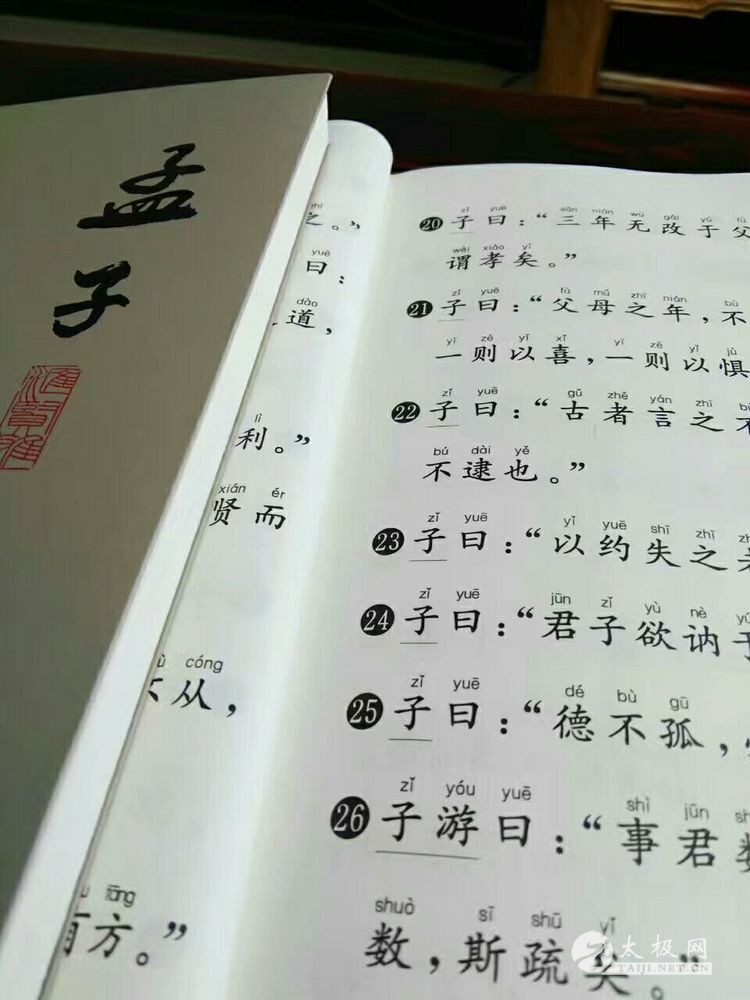 孟子
之。”
曰：
道，
利。”
贤而
从，
方。”
zǐ yuē sān nián wú gǎi yú fù
20 子曰：“三年无改于父
wèi xiào yǐ
谓孝矣。”
zǐ yuē fù mǔ zhī nián bù
21 子曰：“父母之年，不
yī zé yǐ xǐ yī zé yǐ jù
一则以喜，一则以惧
zǐ yuē gǔ zhě yán zhī bù
22 子曰：“古者言之不
bú dài yě
不逮也。”
zǐ yuē yǐ yuē shī zhī zhě
23 子曰：“以约失之者
zǐ yuē jūn zǐ yù nè yú
24 子曰：“君子欲讷于
zǐ yuē dé bù gū
25 子曰：“德不孤，
zǐ yóu yuē shì jūn
26 子游曰：“事君数
shuò sī shū yǐ
数，斯疏矣。”
太极网
TAIJI.NET.CN